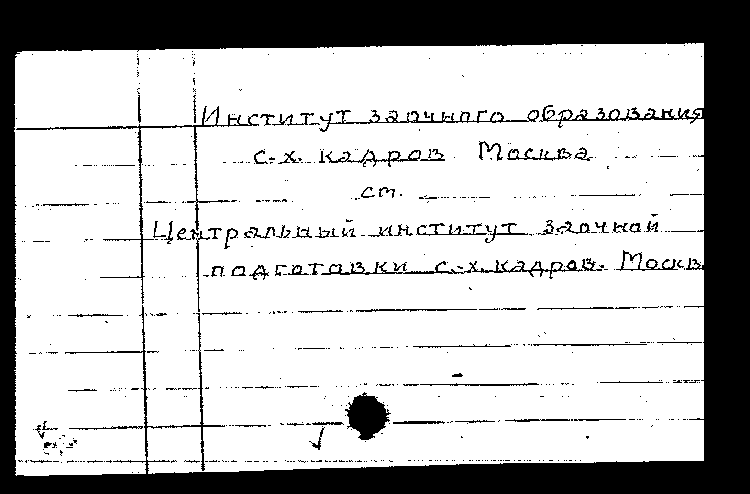 Институт заочного образования
с.-х. кадров Москва
см.
Центральный институт заочной
подготовки с.-х. кадров. Москв